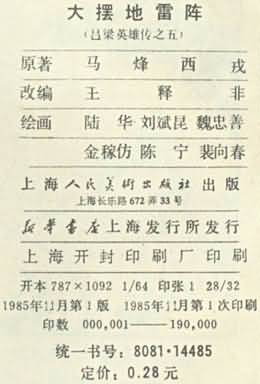 大摆地雷阵
(吕梁英雄传之五)
原著 马烽 西戎
改编 王释非
绘画 陆华 刘斌昆 魏忠善
金稼仿 陈宁 裴向春
上海人民美術出版社出版
上海长乐路672弄33号
新华書店上海发行所发行
上海开封印刷厂印刷
开本787×1092 1/64 印张1 28/32
1985年11月第1版 1985年11月第1次印刷
印数 000,001——190,000
统一书号:8081·14485
定价:0.28元